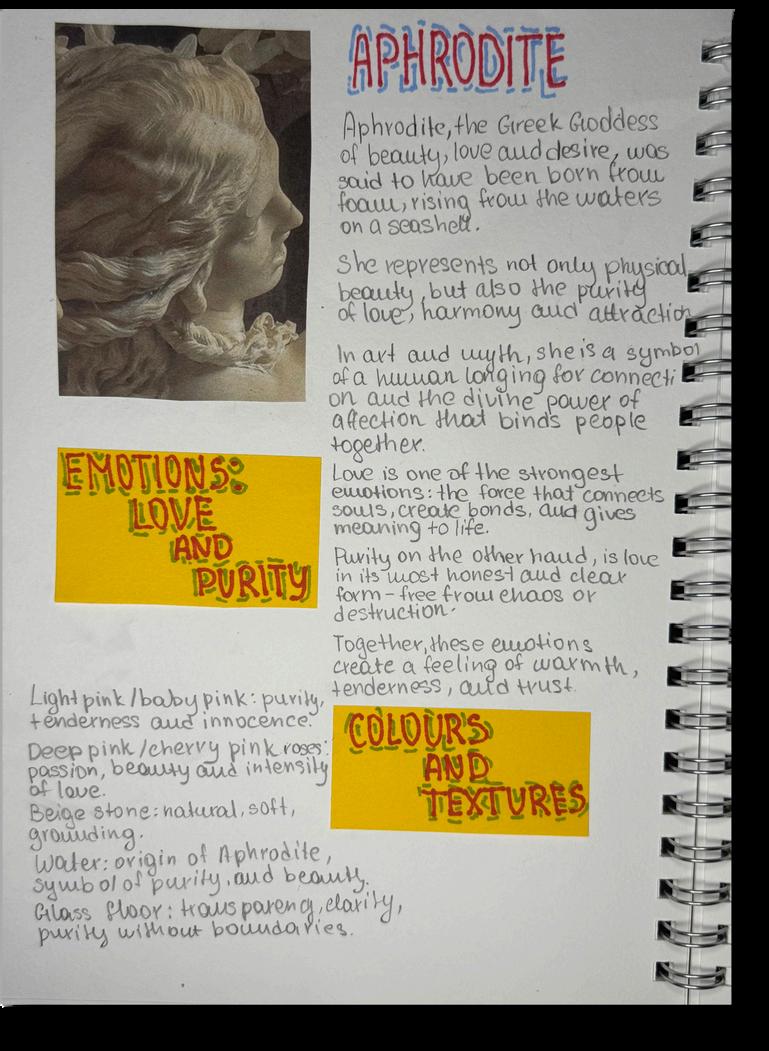 APHRODITE
Aphrodite, the Greek Goddess
of beauty, love and desire, was
said to have been born from
foam, rising from the waters
on a seashell.
She represents not only physical
beauty, but also the purity
of love, harmony and attraction
In art and myth, she is a symbol
of a human longing for connecti
on and the divine power of
affection that binds people
together.
Love is one of the strongest
emotions: the force that connects
souls, create bonds, and gives
meaning to life.
Purity on the other hand, is love
in its most honest and clear
form - free from chaos or
destruction.
Together, these emotions
create a feeling of warmth,
tenderness, and trust.
EMOTIONS:
LOVE
AND
PURITY
COLOURS
AND
TEXTURES
Light pink / baby pink: purity,
tenderness and innocence.
Deep pink / cherry pink roses:
passion, beauty and intensity
of love.
Beige stone: natural, soft,
grounding.
Water: origin of Aphrodite,
symbol of purity, and beauty.
Glass floor: transparency, clarity,
purity without boundaries.